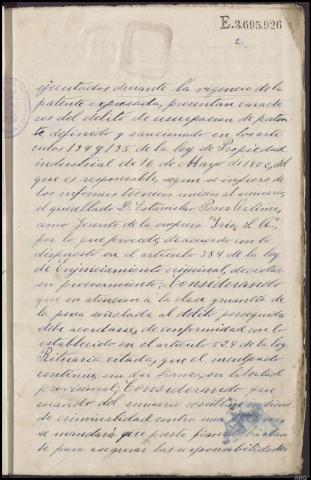 E.3.695.926
2
ejecutados durante la vigencia de la
patente expresada, presentan caracte
res del delito de usurpacion de paten
te definido y sancionado en los arti
culos 134 y 135 de la ley de Propiedad
industrial de 16 de Mayo de 1902, del
que es responsable, segun se infiere de
los informes técnicos unidos al sumario,
el querellado D. Estanislao Perez
como Gerente de la empresa S. A.",
por lo que procede, de acuerdo con lo
dispuesto en el artículo 384 de la ley
de Enjuiciamiento criminal, decretar
su procesamiento; Considerando
que en atencion a la clase y cuantía de
la pena señalada al delito perseguido
debe acordarse, de conformidad con lo
establecido en el artículo 529 de la ley
Rituaria citada, que el inculpado
continúe, sin dar fianza, en libertad
provisional; Considerando que
cuando del sumario resulten indicios
de criminalidad contra una persona,
se mandará que preste fianza bastan
te para asegurar las responsabilidades